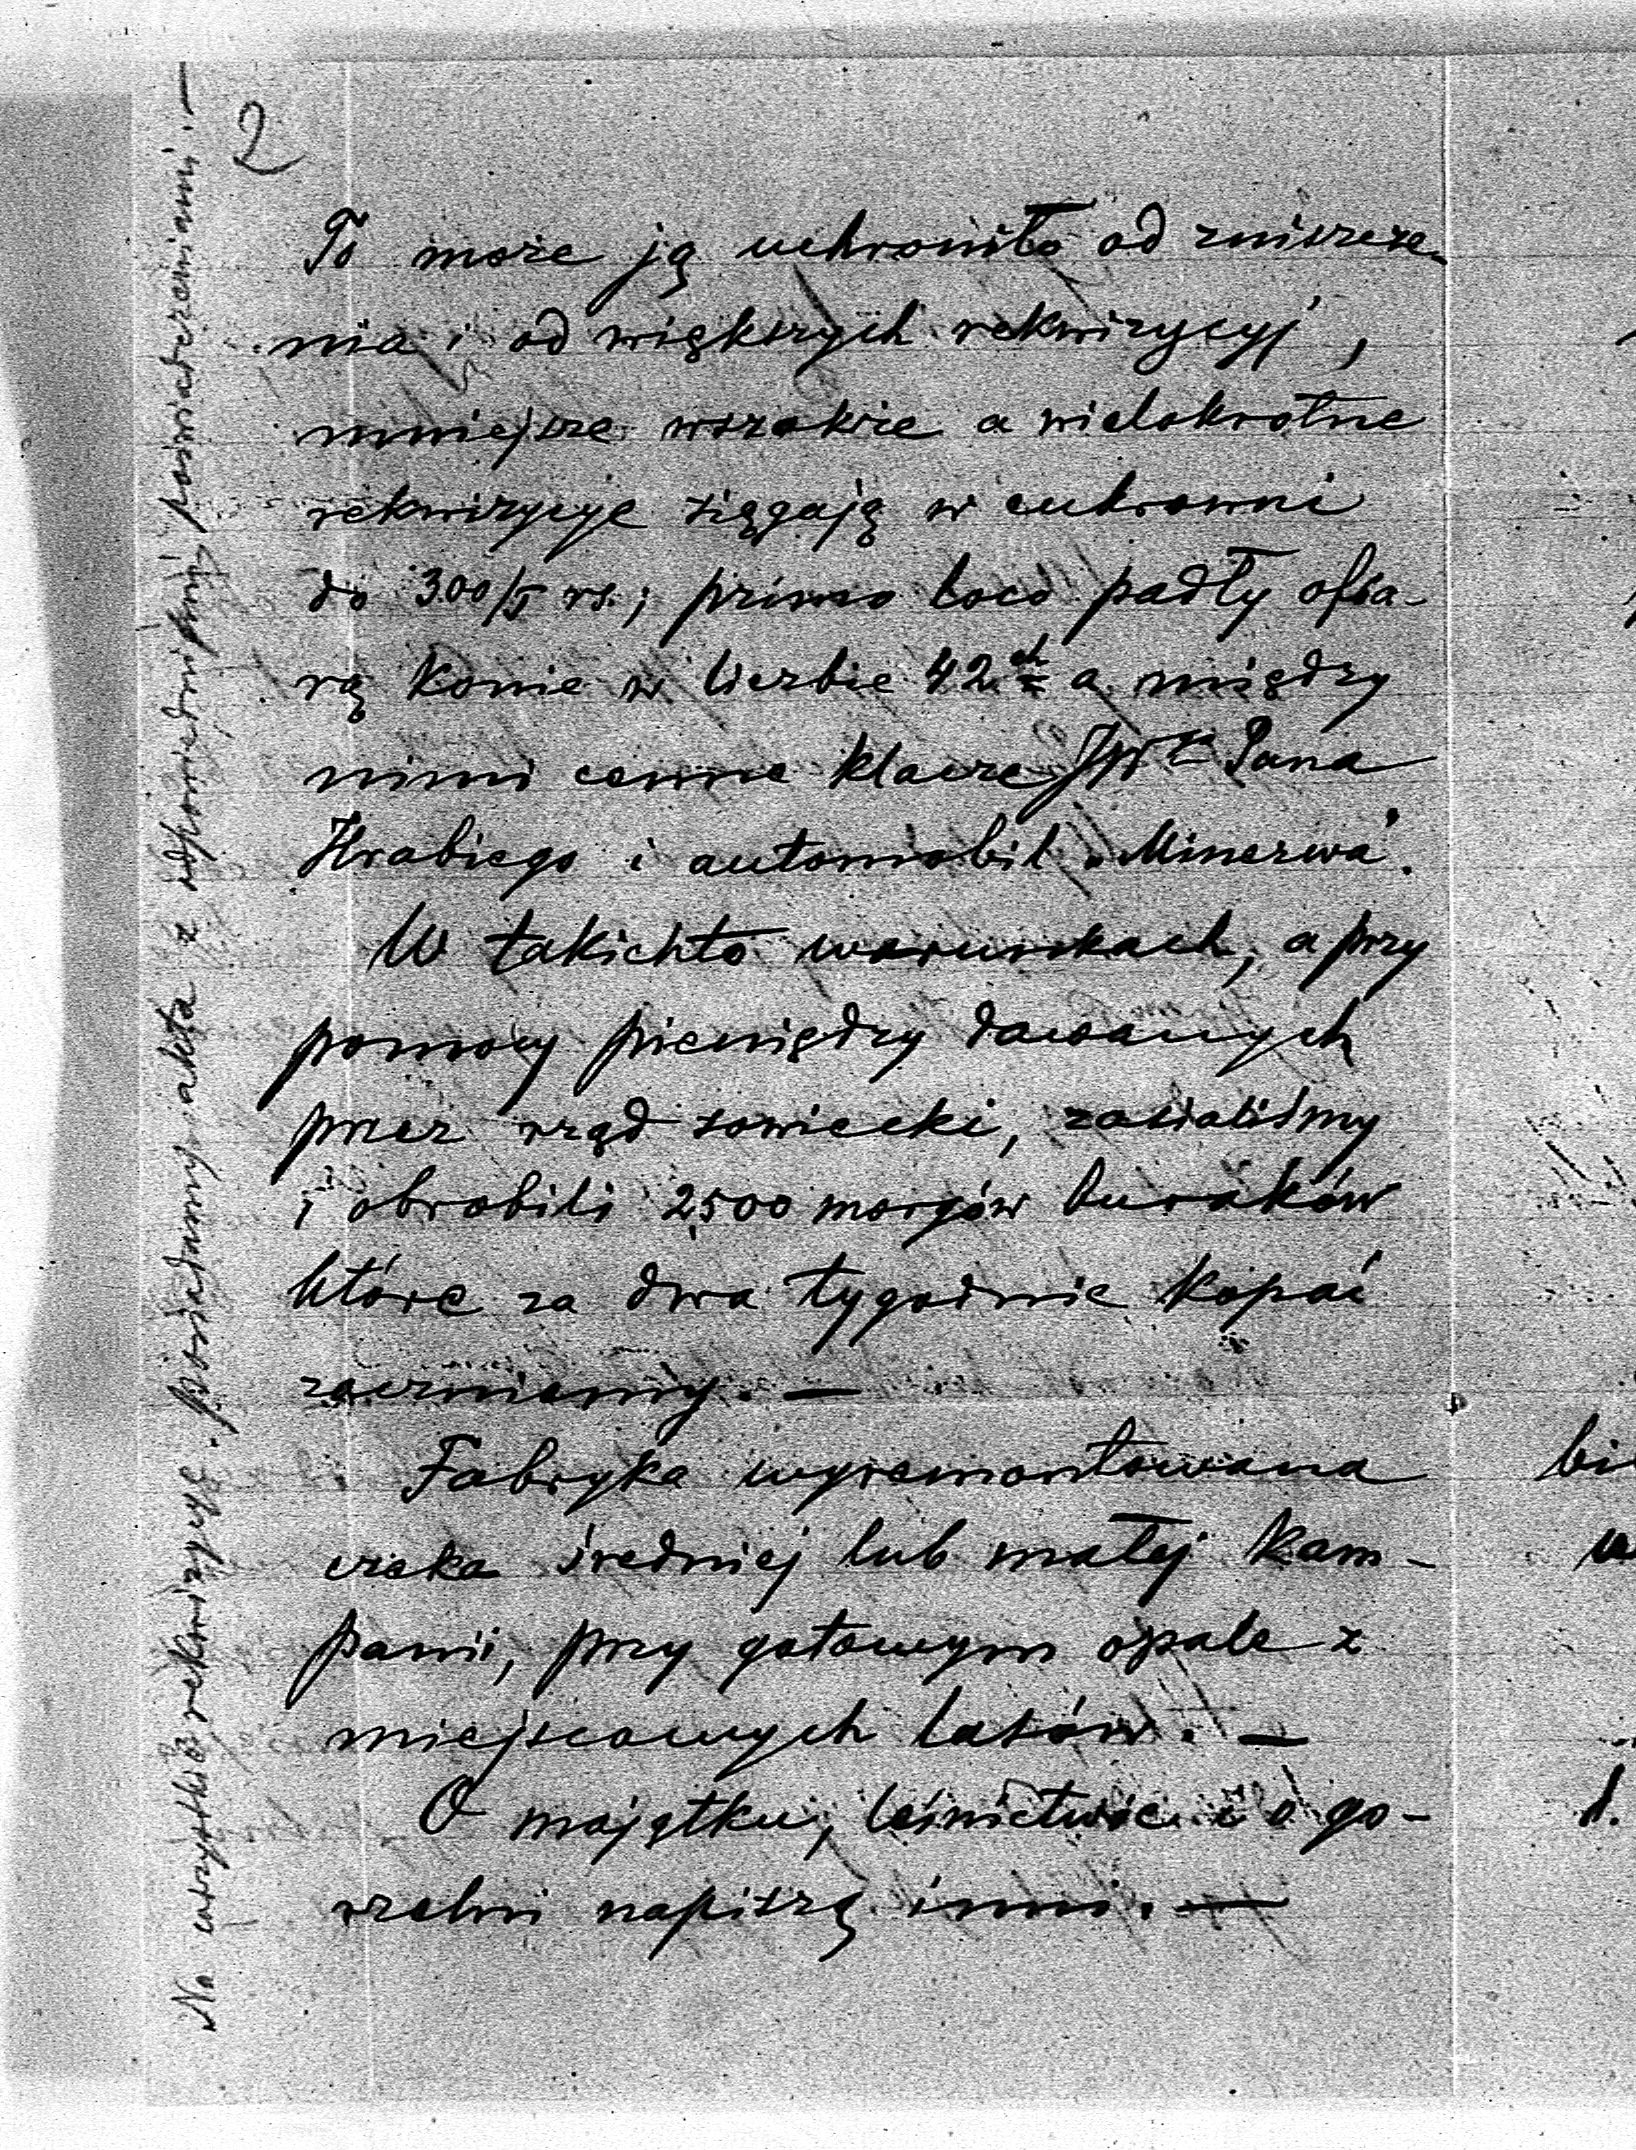 2
To może ją uchroniło od zniszcze-
nia i od większych rekwizycyj,
mniejsze wszakże a wielokrotne
rekwizycye sięgają w cukrowni
do 300/T rs.; primo loco padły ofia-
rą konie w liczbie 42ch a między
nimi cenne klacze JWgo Pana
Hrabiego i automobil „Minerwa”.
W takichto warunkach, a przy
pomocy pieniędzy dawanych
przez rząd sowiecki, zasialiśmy
i obrobili 2500 morgów buraków
które za dwa tygodnie kopać
zaczniemy. —
Fabryka wyremontowana
czeka średniej lub małej kam-
panii, przy gotowym opale z
miejscowych lasów. —
O majątku, leśnictwie i o go-
rzelni napiszą inni. —
Na wszystkie rekwizycye posiadamy akta z odpowiedniemi poświadczeniami. —